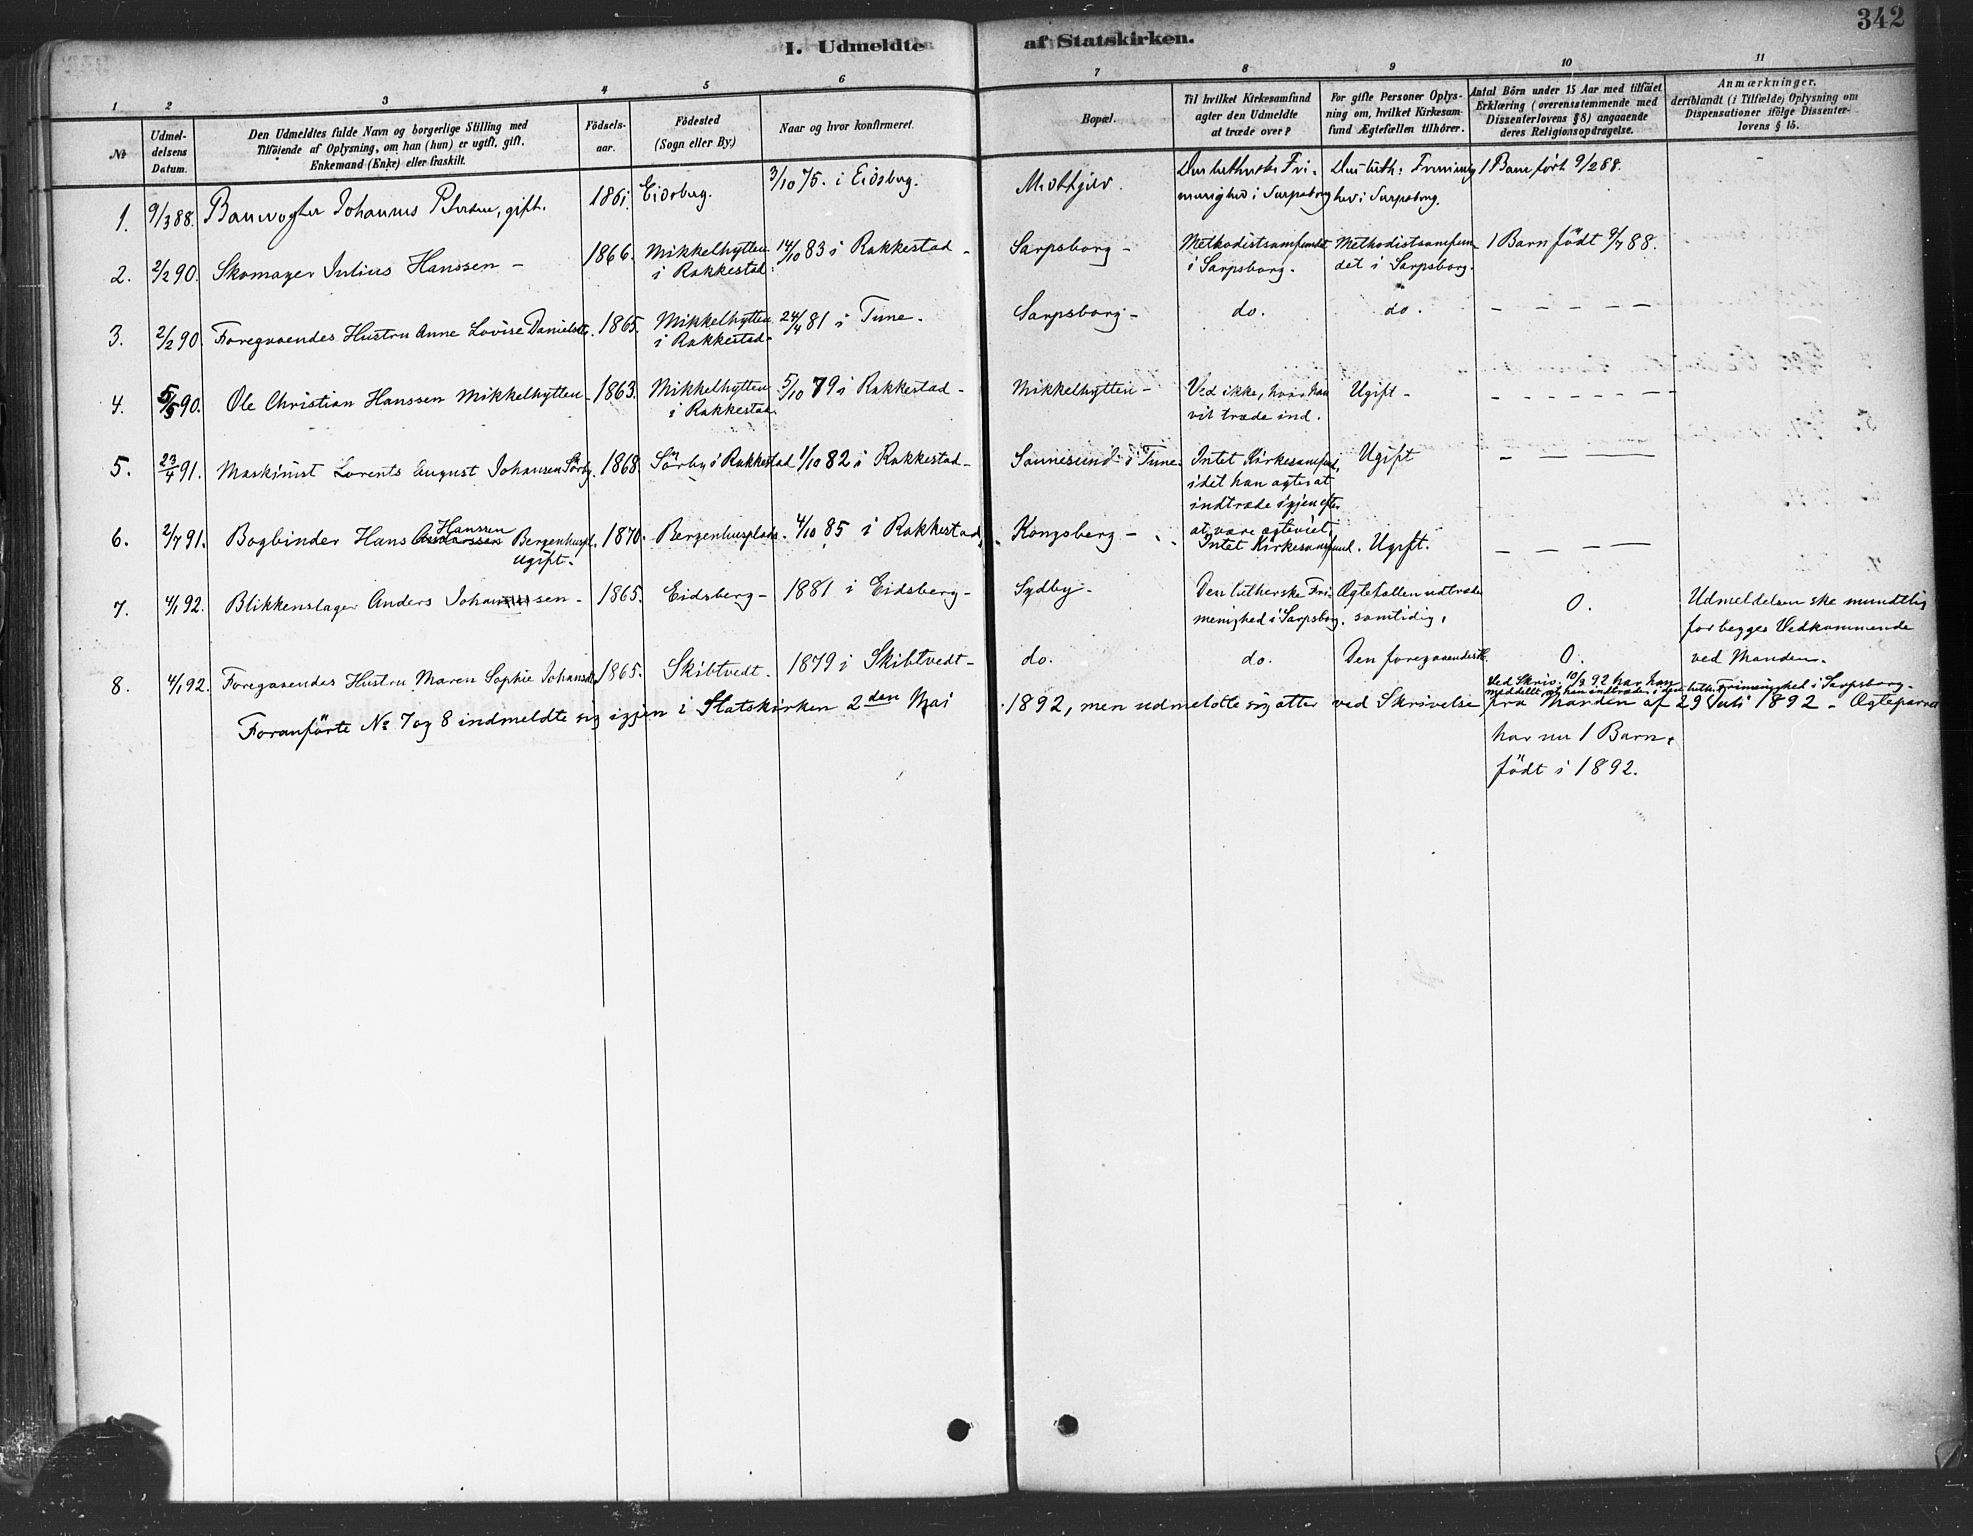 342
I. Udmeldte af Statskirken.
1 2 3 4 5 6 7 8 9 10 11
No
Udmeldelsens Datum.
Den Udmeldtes fulde Navn og borgerlige Stilling med
Tilføiende af Oplysning, om han (hun) er ugift, gift,
Enkemand (Enke) eller fraskilt.
Födsels-
aar.
Födested
(Sogn eller By.)
Naar og hvor konfirmeret.
Bopæl.
Til hvilket Kirkesamfund
agter den Udmeldte
at træde over?
For gifte Personer Oplys-
ning om, hvilket Kirkesam-
fund Ægtefællen tilhörer.
Antal Börn under 15 Aar med tilföiet
Erklæring (overensstemmende med
Dissenterlovens § 8) angaaende
deres Religionsopdragelse.
Anmærkninger,
deriblandt (i Tilfælde) Oplysning om
Dispensationer ifölge Dissenter-
lovens § 15.
1. 9/3 88. Banevogter Johannes gift. 1861. Eidsberg. 3/10 75. i Eidsberg.
Den lutherske Fri-
menighed i Sarpsborg
Den luth. Frimenig
hed i Sarpsborg.
1 Barn født 9/2 88.
2. 2/2 90. Skomager Julius Hanssen - 1866. Mikkelhytten
i Rakkestad. 14/10 83 i Rakkestad - Sarpsborg -
Methodistsamfundet
i Sarpsborg.
Methodistsamfun-
det i Sarpsborg.
1 Barn födt 9/7 88.
3. 2/2 90. Foregaaendes Hustru Anne Lovise Danielsdtr. 1865. Mikkelhytten
i Rakkestad. 24/4 81 i Tune. Sarpsborg - do. do. - - - - -
4. 5/5 90. Ole Christian Hanssen Mikkelhytten - 1863. Mikkelhytten
i Rakkestad. 5/10 79 i Rakkestad - Mikkelhytten -
Ved ikke, hvor han
vil træde ind.
Ugift - - - - - - - -
5. 23/4 91. Maskinist Lorents August Johansen Sörby. 1868. Sörby i Rakkestad 1/10 82 i Rakkestad - Sannesund i Tune.
Intet Kirkesamfund,
idet han agter at
indtræde igjen efter
at være ægteviet.
Ugift - - - -
6. 2/7 91. Bogbinder Hans Anderssen Hanssen Bergenhuspl.
Ugift. 1870. Bergenhusplads. 4/10 85 i Rakkestad. Kongsberg -
Intet Kirkesamfund. Ugift. - - - -
7. 4/1 92. Blikkenslager Anders Johannessen - 1865. Eidsberg - 1881 i Eidsberg - Sydby -
Den lutherske Fri-
menighed i Sarpsborg.
Ægtefællen udtræder
samtidig.
0.
Udmeldelsen ske mundtlig
for begges Vedkommende
ved Manden.
8. 4/1 92. Foregaaendes Hustru Maren Sophie Johansdtr. 1865. Skibtvedt. 1879 i Skibtvedt - do. do. Den foregaaendes 0.
Ved Skriv. 10/3 92 har han
meddelt at han indtræder i den luth. Frimenighed i Sarpsborg.
Foranförte No 7 og 8 indmeldte sig igjen i Statskirken 2den Mai 1892, men udmeldte sig atter ved Skrivelse fra Manden af 29 Juli 1892 - Ægteparret
har nu 1 Barn,
födt i 1892.